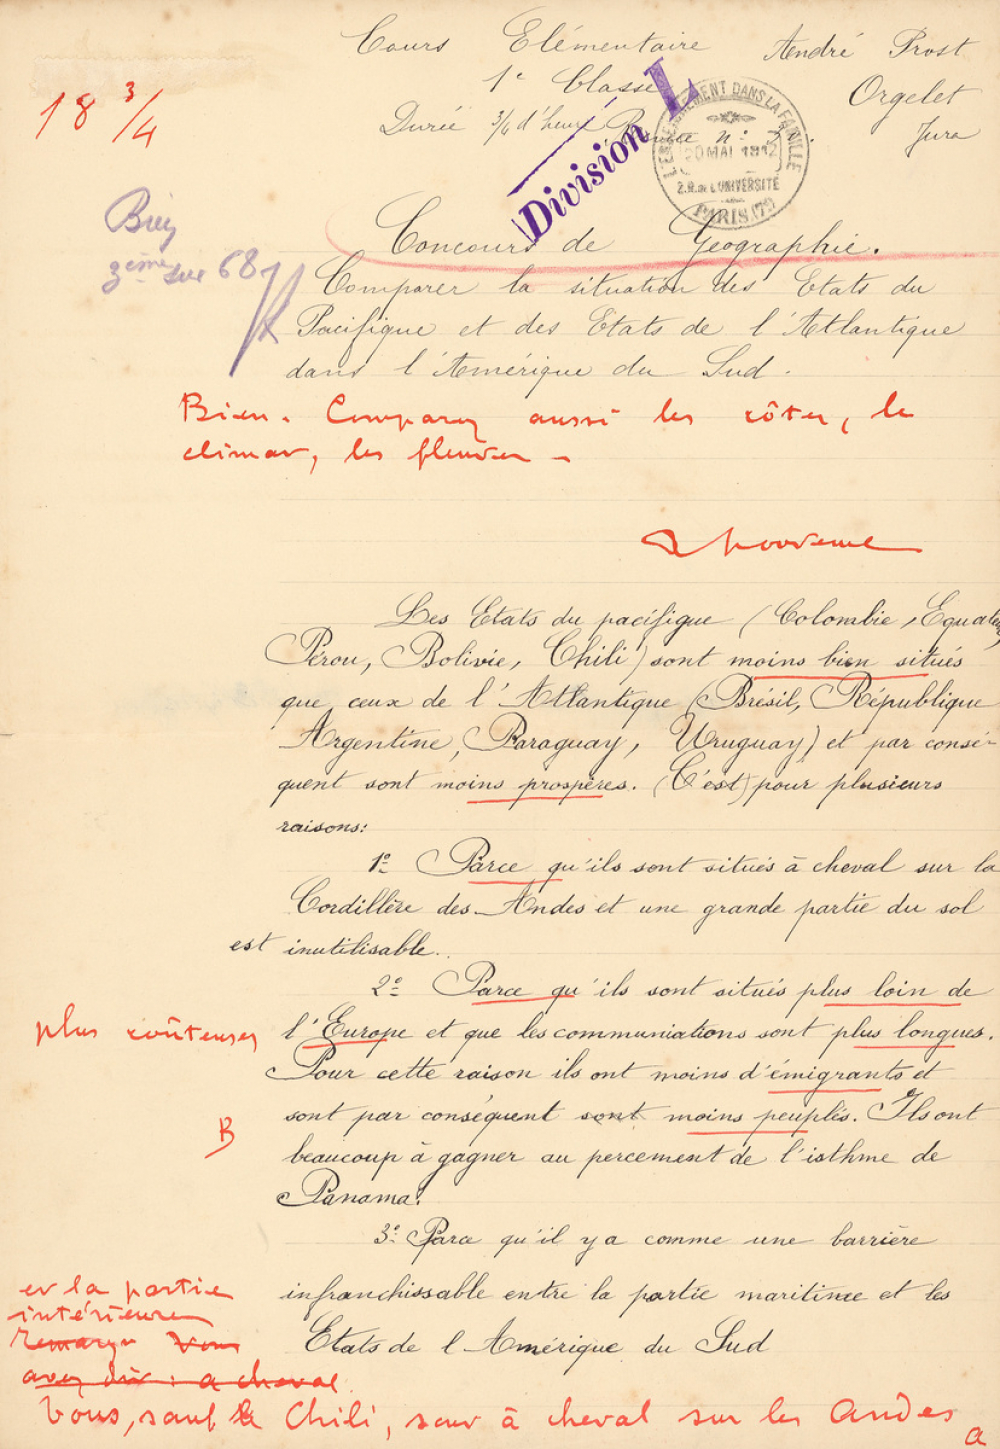 Cours Elémentaire
André Prost
1e Classe
Orgelet
Durée 3/4 d'heure
Jura
18 3/4
Division L
L'ENSEIGNEMENT DANS LA FAMILLE
20 MAI 1912
2.R. DE L'UNIVERSITÉ
PARIS (7e)
3ème sur 68
Concours de Géographie.
Comparer la situation des Etats du
Pacifique et des Etats de l'Atlantique
dans l'Amérique du Sud.
Bien. Comparez aussi les côtes, le
climat, les fleuves -
Les Etats du pacifique (Colombie, Equateur,
Pérou, Bolivie, Chili) sont moins bien situés
que ceux de l'Atlantique (Brésil, République
Argentine, Paraguay, Uruguay) et par consé-
quent sont moins prospères. (C'est) pour plusieurs
raisons:
1º Parce qu'ils sont situés à cheval sur la
Cordillère des Andes et une grande partie du sol
est inutilisable.
2º Parce qu'ils sont situés plus loin de
plus coûteuses
l'Europe et que les communiations sont plus longues.
Pour cette raison ils ont moins d'émigrants et
sont par conséquent sont moins peuplés. Ils ont
B
beaucoup à gagner au percement de l'isthme de
Panama.
3º Parce qu'il y a comme une barrière
infranchissable entre la partie maritime et les
Etats de l'Amérique du Sud
et la partie
intérieure
Remarque Vous
avez dit : a cheval
Tous, sauf le Chili, sont à cheval sur les Andes
a